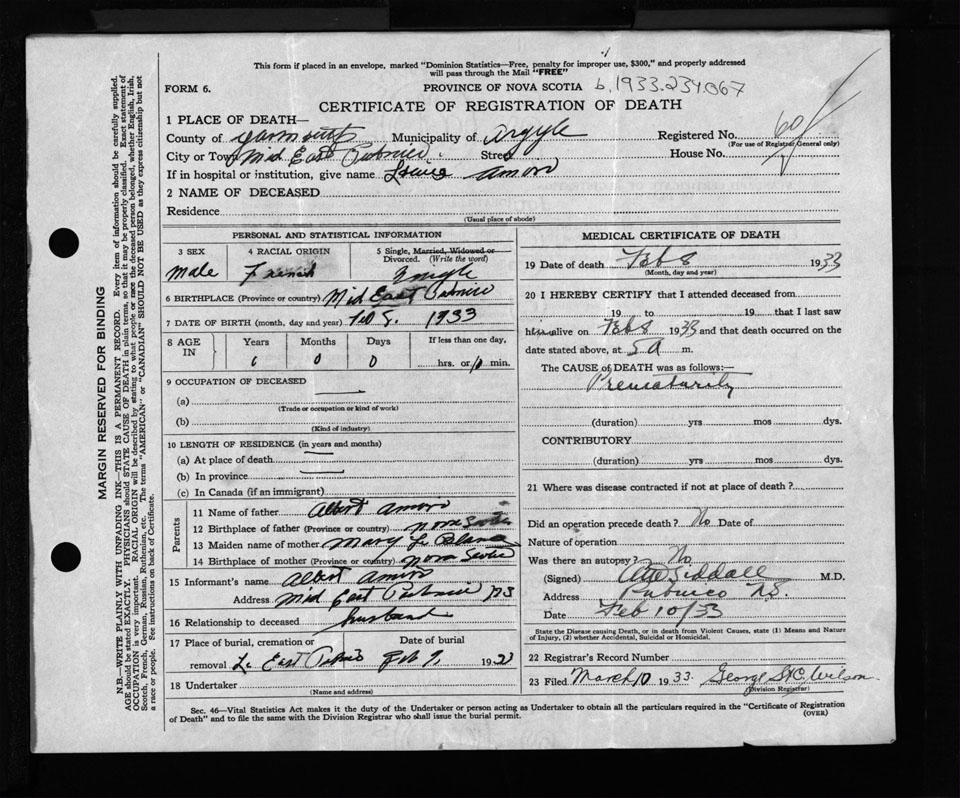 This form if placed in an envelope, marked "Dominion Statistics—Free, penalty for improper use, $300," and properly addressed
will pass through the Mail "FREE"
FORM 6.
PROVINCE OF NOVA SCOTIA b.1933.234067
CERTIFICATE OF REGISTRATION OF DEATH
1 PLACE OF DEATH—
County of Yarmouth Municipality of Argyle Registered No. 60
(For use of Registrar General only)
City or Town Mid East Pubnico Street House No.
If in hospital or institution, give name Amiro
2 NAME OF DECEASED
Residence
(Usual place of abode)
PERSONAL AND STATISTICAL INFORMATION
3 SEX 4 RACIAL ORIGIN 5 Single, Married, Widowed or
Divorced. (Write the word)
Male French Single
6 BIRTHPLACE (Province or country) Mid East Pubnico
7 DATE OF BIRTH (month, day and year) Feb 8. 1933
8 AGE IN Years Months Days If less than one day,
0 0 hrs. or 10 min.
9 OCCUPATION OF DECEASED
(a)
(Trade or occupation or kind of work)
(b)
(Kind of industry)
10 LENGTH OF RESIDENCE (in years and months)
(a) At place of death
(b) In province
(c) In Canada (if an immigrant)
Parents
11 Name of father Albert Amiro
12 Birthplace of father (Province or country) Nova Scotia
13 Maiden name of mother Mary Le Blanc
14 Birthplace of mother (Province or country) Nova Scotia
15 Informant's name Albert Amiro
Address Mid East Pubnico NS
16 Relationship to deceased husband
17 Place of burial, cremation or Date of burial
removal East Pubnico Feb 9, 1933
18 Undertaker
(Name and address)
MEDICAL CERTIFICATE OF DEATH
19 Date of death Feb 8 1933
(Month, day and year)
20 I HEREBY CERTIFY that I attended deceased from
19 to 19 that I last saw
him alive on Feb 8 1933 and that death occurred on the
date stated above, at 5 a m.
The CAUSE of DEATH was as follows:—
Prematurity
(duration) yrs mos dys.
CONTRIBUTORY
(duration) yrs mos dys.
21 Where was disease contracted if not at place of death?
Did an operation precede death? No Date of
Nature of operation
Was there an autopsy? No
(Signed) Siddall M.D.
Address Pubnico N.S.
Date Feb 10/33
State the Disease causing Death, or in death from Violent Causes, state (1) Means and Nature
of Injury, (2) whether Accidental, Suicidal or Homicidal.
22 Registrar's Record Number
23 Filed March 10 1933. George St C. Wilson
(Division Registrar)
Sec. 46—Vital Statistics Act makes it the duty of the Undertaker or person acting as Undertaker to obtain all the particulars required in the "Certificate of Registration
of Death" and to file the same with the Division Registrar who shall issue the burial permit.
(OVER)
MARGIN RESERVED FOR BINDING
N.B.—WRITE PLAINLY WITH UNFADING INK—THIS IS A PERMANENT RECORD. Every item of information should be carefully supplied.
AGE should be stated EXACTLY. PHYSICIANS should STATE CAUSE OF DEATH in plain terms, so that it may be properly classified. Exact statement of
OCCUPATION is very important. RACIAL ORIGIN will be described by stating to what people or race the deceased person belonged, whether English, Irish,
Scotch, French, German, Russian, Ruthenian, etc. The terms "AMERICAN" or "CANADIAN" SHOULD NOT BE USED as they express citizenship but not
a race or people. See instructions on back of Certificate.